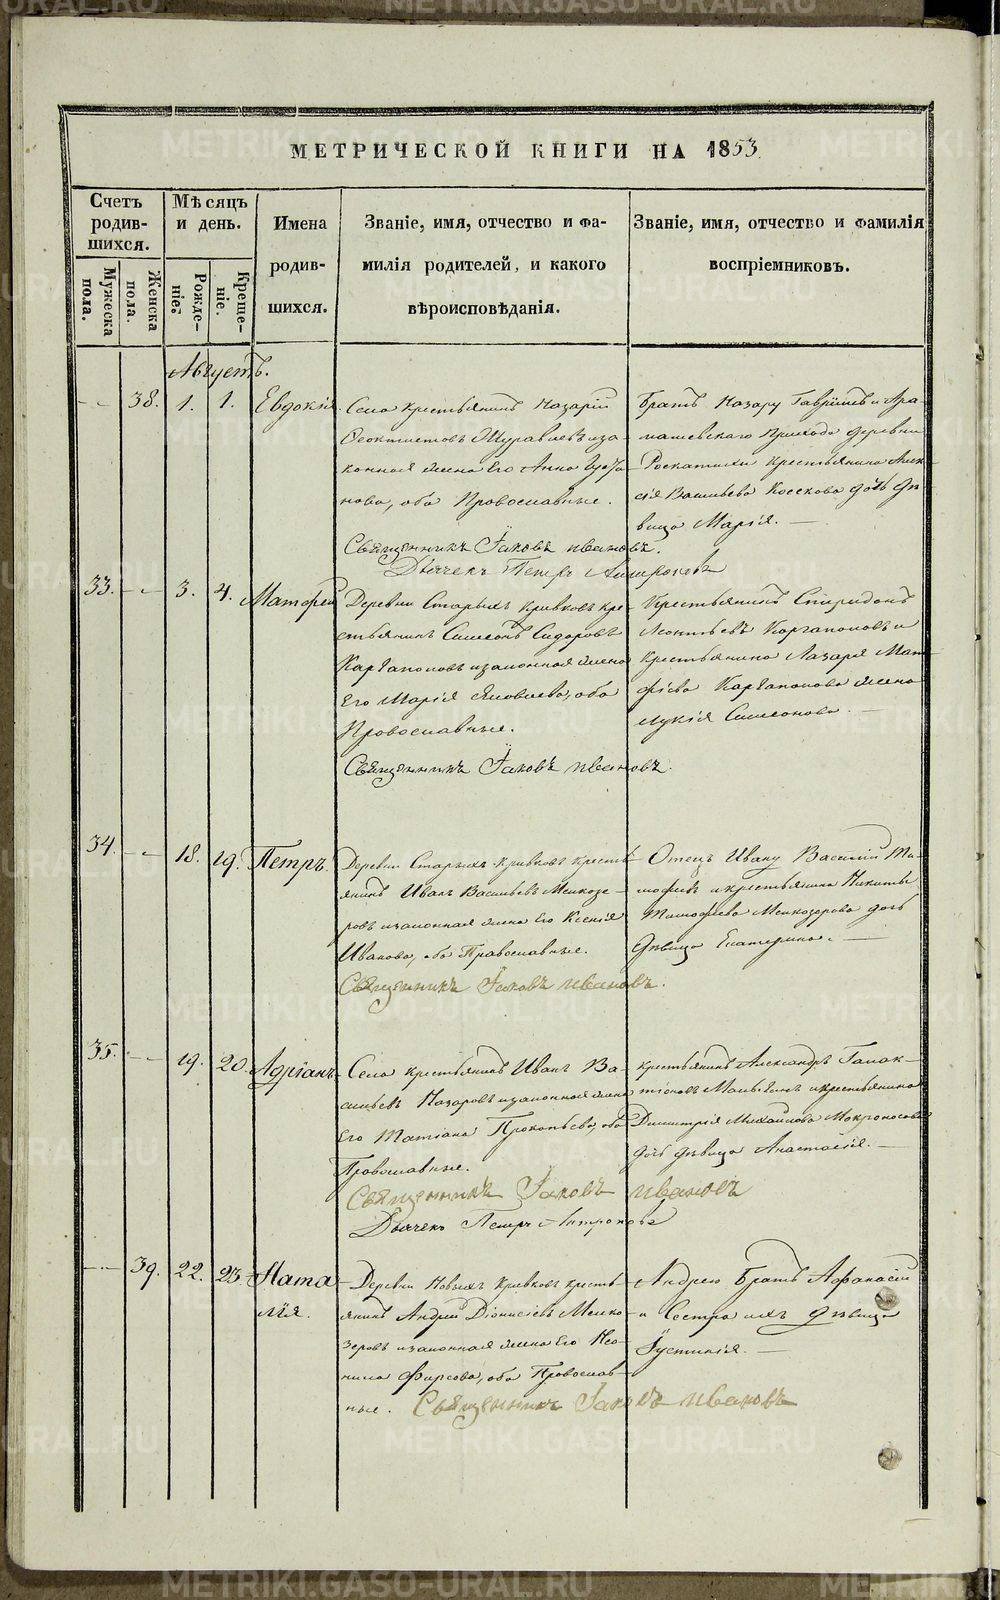 МЕТРИЧЕСКОЙ КНИГИ НА 1853.
Счетъ родив-шихся.
Мужеска пола.
Женска пола.
Мѣсяцъ и день.
Рожде-ніе.
Креще-ніе.
Имена родив-шихся.
Званіе, имя, отчество и фа-
милія родителей, и какого
вѣроисповѣданія.
Званіе, имя, отчество и фамилія
воспріемниковъ.
Августъ.
38. 1. 1. Евдокія
Села крестьянинъ Назарій
Феоктистовъ Журавлевъ иза-
конная жена его Анна
нова, оба Православные.
Священникъ Іаковъ Ивановъ.
Дьячекъ Петръ
Братъ Назару Гавріилъ и Ара-
машевскаго прихода деревни
крестьянина Алек-
сія Васильева дочь дѣ-
вица Марія.
33. 3. 4. Матфей
Деревни Старыхъ Кривковъ кре-
стьянинъ Симеонъ Сидоровъ
Каргаполовъ изаконная жена
его Марія Яковлева, оба
Православные.
Священникъ Іаковъ Ивановъ.
Крестьянинъ Спиридонъ
Леонтьевъ Каргаполовъ и
крестьянина Лазаря Мат-
фіева Каргаполова жена
Лукія Симеонова.
34. 18. 19. Петръ.
Деревни Старыхъ Кривковъ кресть-
янинъ Иванъ Васильевъ Мелкозе-
ровъ изаконная жена его Ксенія
Иванова, оба Православные.
Священникъ Іаковъ Ивановъ.
Отецъ Ивану Василий Ти-
мофѣевъ и крестьянина Никиты
Тимофѣева Мелкозерова дочь
дѣвица Екатерина.
35. 19. 20. Адріанъ
Села крестьянинъ Иванъ Ва-
сильевъ Назаровъ изаконная жена
его Татіана Прокопьева, оба
Православные.
Священникъ Іаковъ Ивановъ
Дьячекъ Петръ
крестьянинъ Александръ Галак-
тіоновъ и крестьянина
Димитрія Михайлова Мокроносова
дочь дѣвица Анастасія.
39. 22. 23. Ната-
лія.
Деревни Новыхъ Кривковъ кресть-
янинъ Андрей Діонисіевъ Мелко-
зеровъ изаконная жена его Нео-
нила Фирсова, оба Православ-
ные. Священникъ Іаковъ Ивановъ
Андрею Братъ Афанасій
и Сестра ихъ дѣвица
Іустинія.
METRIKI.GASO-URAL.RU